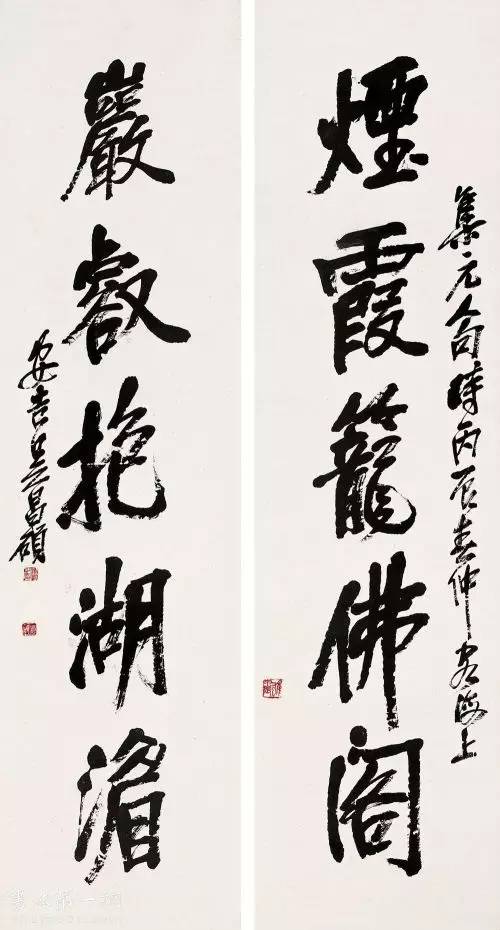 煙霞籠佛閣
集元人句時丙辰春仲客海上
巖壑抱湖湄
安吉吳昌碩